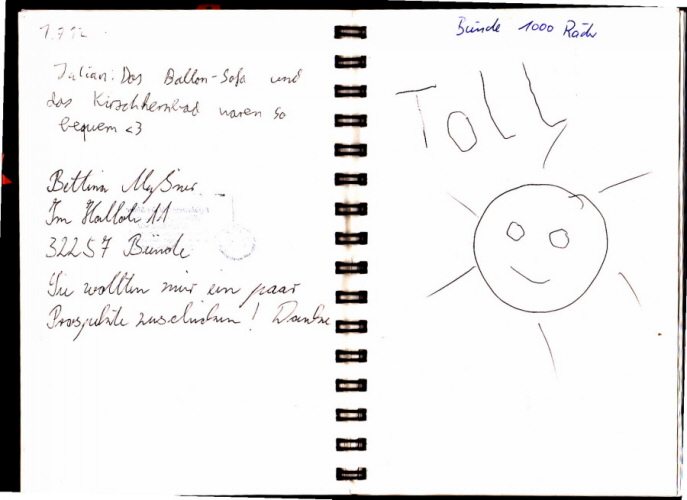 1.7.12
Julian: Das Ballon-Sofa und
das Kirschkernbad waren so
bequem <3
Bettina
Im 11
32257 Bünde
Sie wollten mir ein paar
Prospekte zuschicken! Danke
Bünde 1000 Räder
Toll